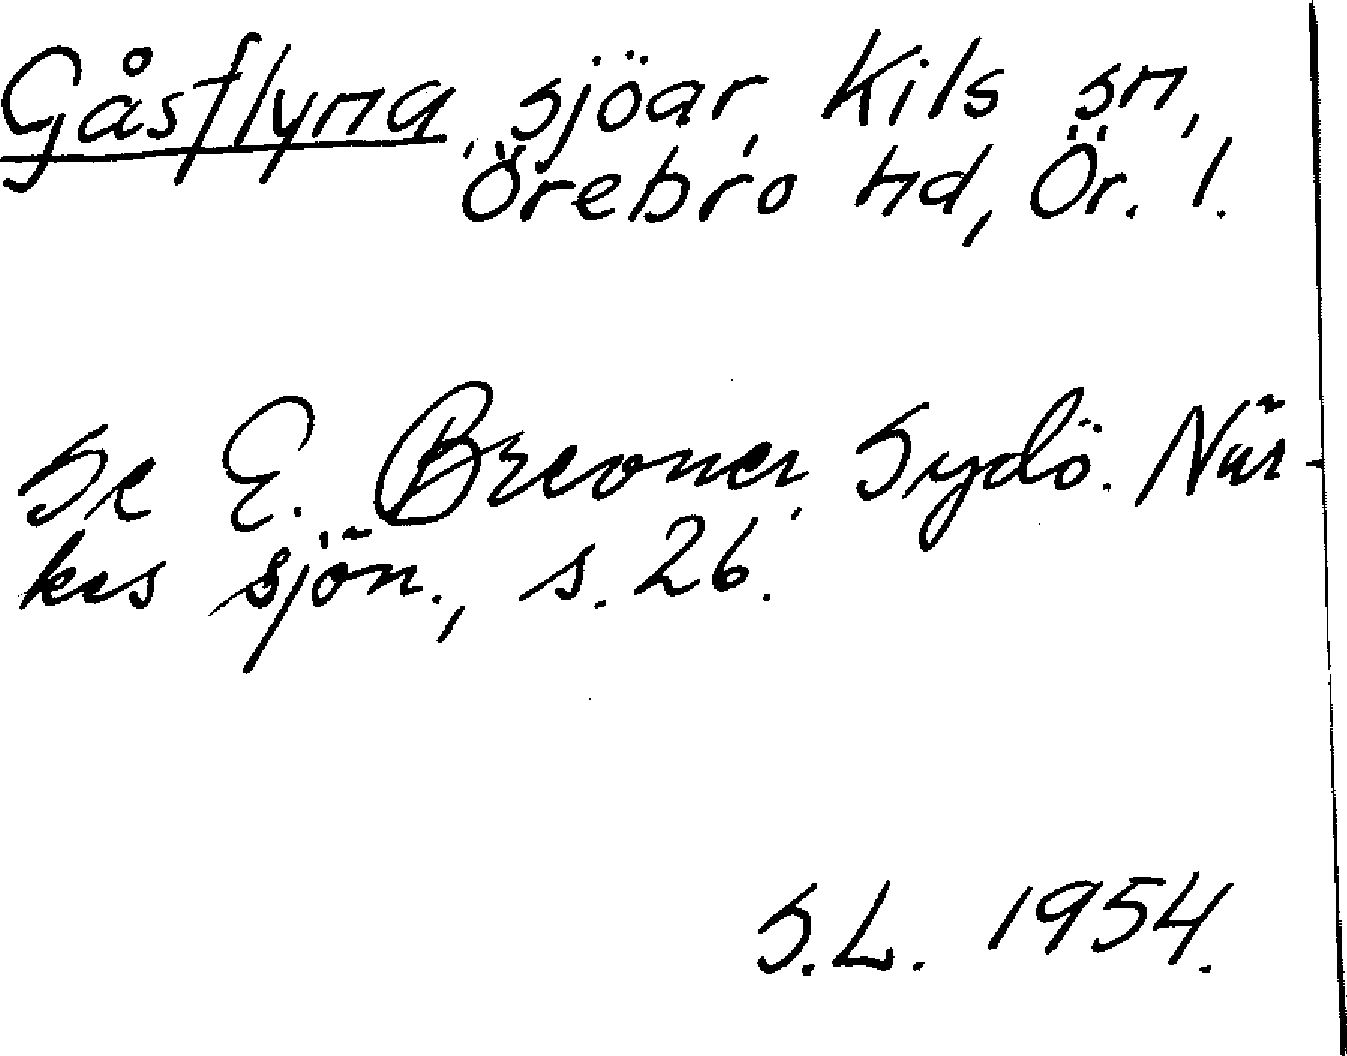 Gåsflyna, sjöar, Kils sn,
Örebro hd, Ör. l.
Se E. Brevner, Sydö. När-
kes sjön., s. 26.
S.L. 1954.